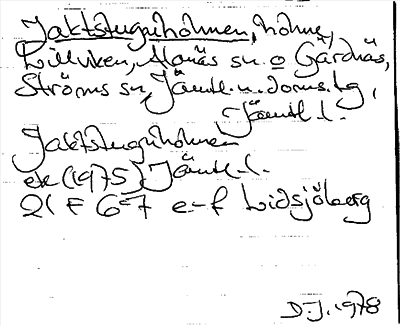 Jaktstuguholmen, holme,
Lillviken, Alanäs sn o Gärdnäs,
Ströms sn, Jämtl. n. doms. tg,
Jämtl. l.
Jaktstuguholmen
ek (1975) Jämtl. l.
21 F 6-7 e-f Lidsjöberg
D-J. 1978